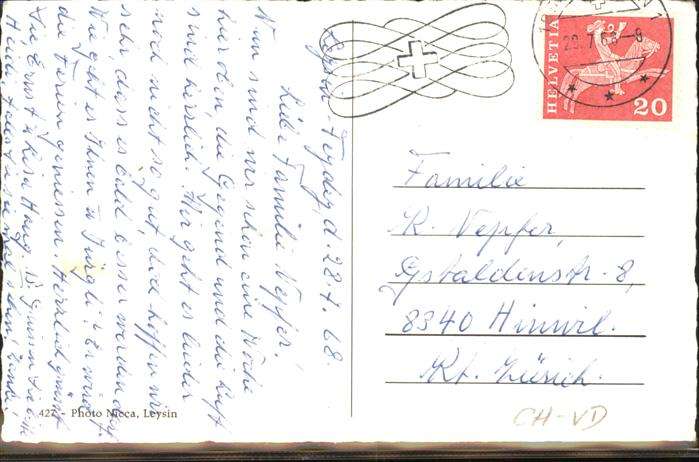 Leysin-Feydey, d. 28.7.68.
Liebe Familie Nepfer!
Nun sind wir schon eine Woche
hier oben, die Gegend und die Luft
sind herrlich. Mir geht es leider
noch nicht so gut, doch hoffen wir
sehr, dass es bald besser werden darf.
Wie geht es Ihnen u. Jürgli? Er wird
die Ferien geniessen. Herzlich grüsst
Sie, Ernst u. Rosa Haug.
HELVETIA
20
Familie
R. Nepfer,
Gstaldenstr. 8,
8340 Hinwil.
Kt. Zürich.
427 - Photo Nicca, Leysin
CH-VD